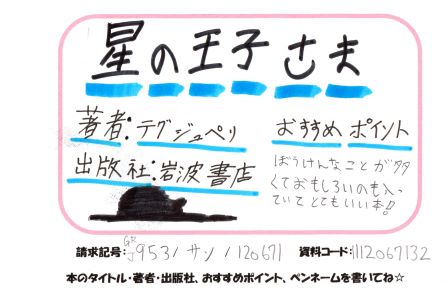 星の王子さま
著者:テグジュペリ
おすすめポイント
出版社:岩波書店
ぼうけんなことが多
くておもしろいのも入っ
ていてとてもいい本!!
請求記号: J953/サン/120671 資料コード:1112067132
本のタイトル・著者・出版社、おすすめポイント、ペンネームを書いてね☆